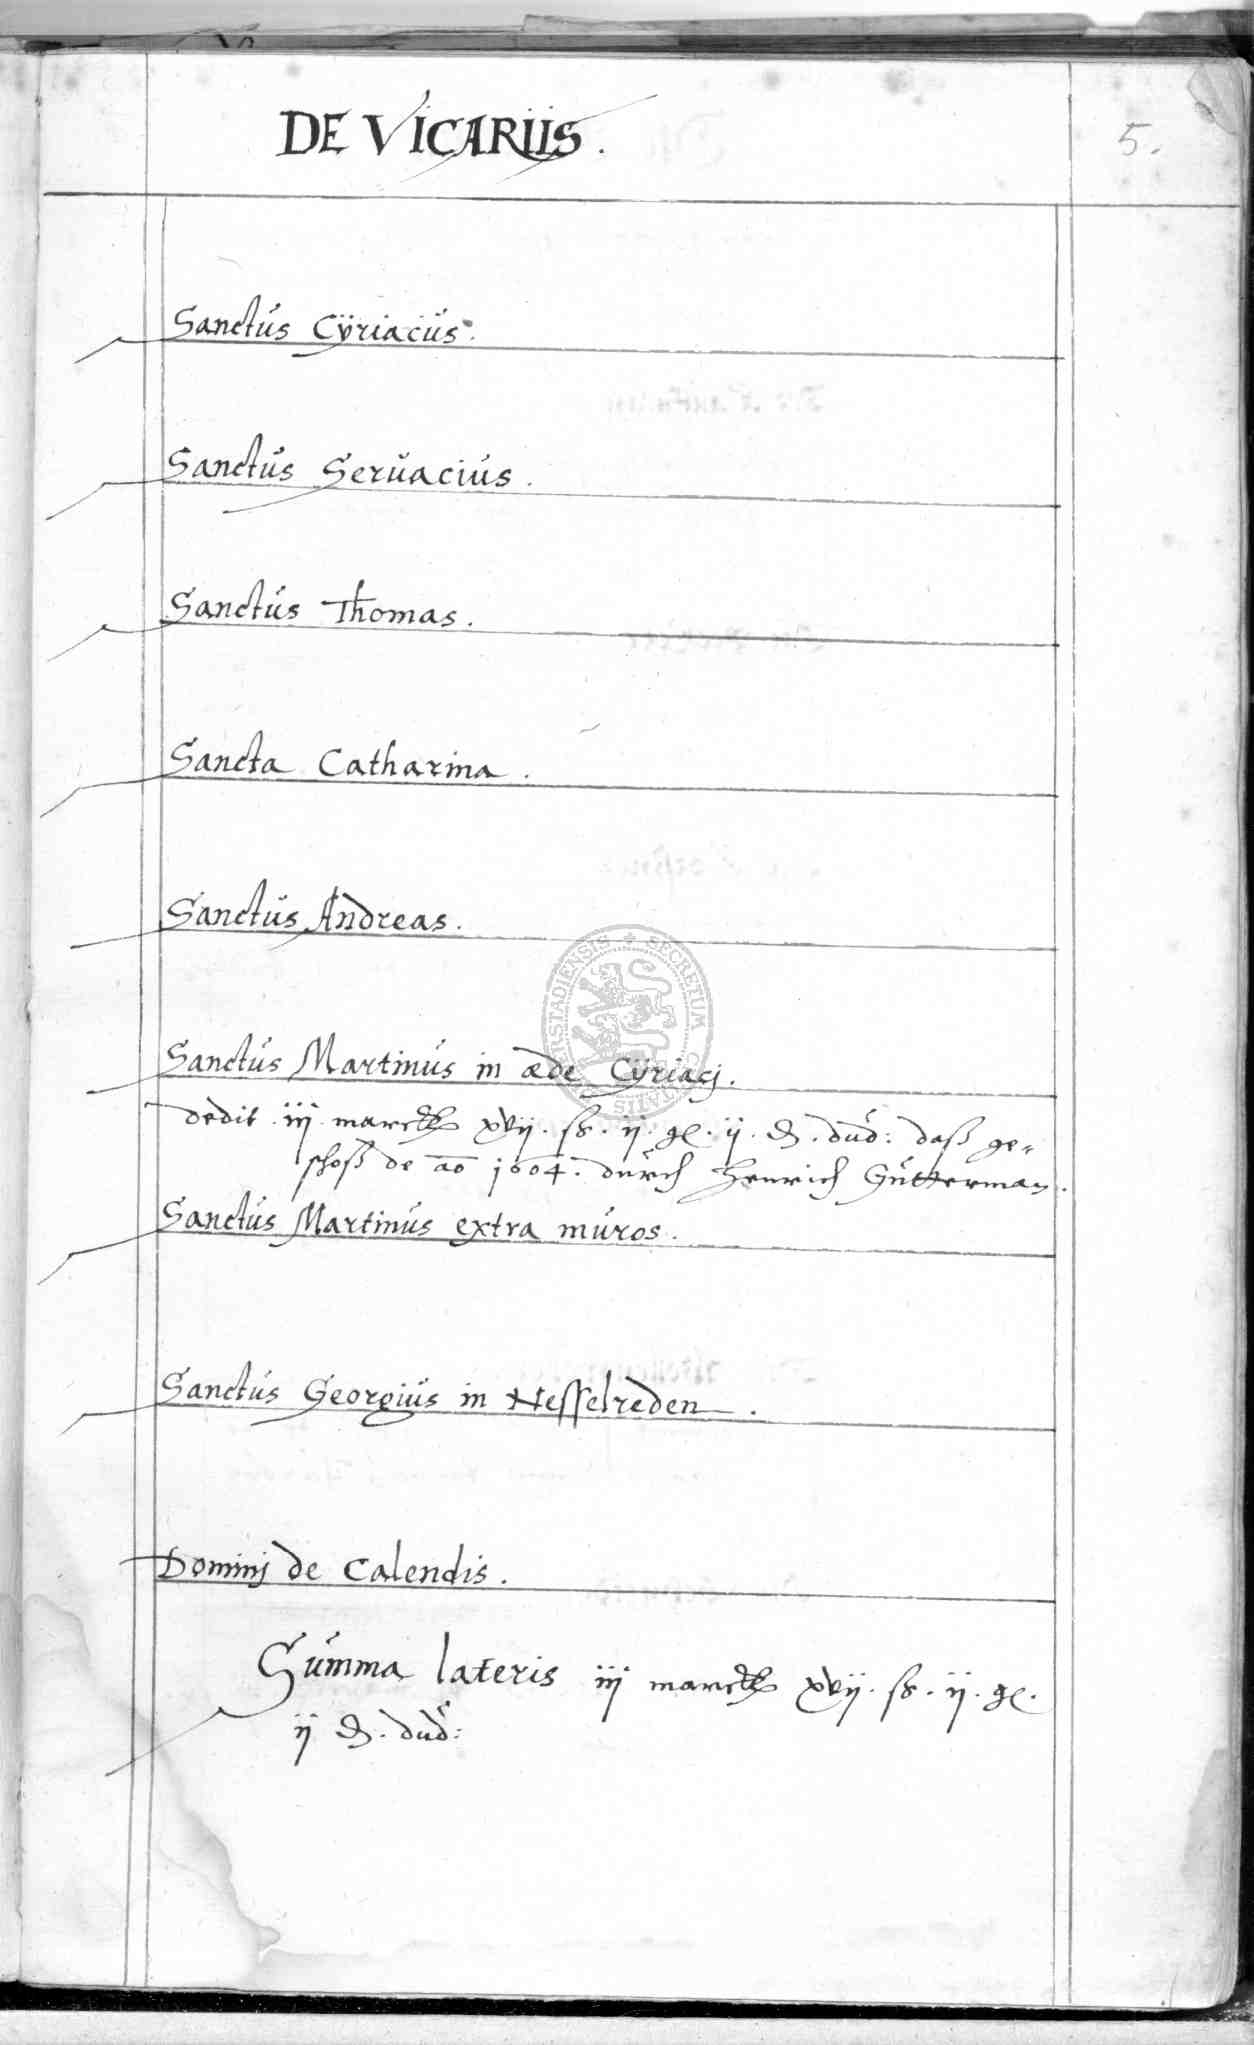 DE VICARIIS.
5.
Sanctus Cÿriacus.
Sanctus Seruacius.
Sanctus Thomas.
Sancta Catharina.
Sanctus Andreas.
Sanctus Martinus in æde Cÿriacj.
dedit iij marck xvij. ß. ij. gl. ij. d. daß ge-
schoß de ao 1604. durch Henrich Gutterman.
Sanctus Martinus extra muros.
Sanctus Georgius in Nesselreden.
Dominj de Calendis.
Summa lateris iij marck xvij. ß. ij. gl.
ij d.